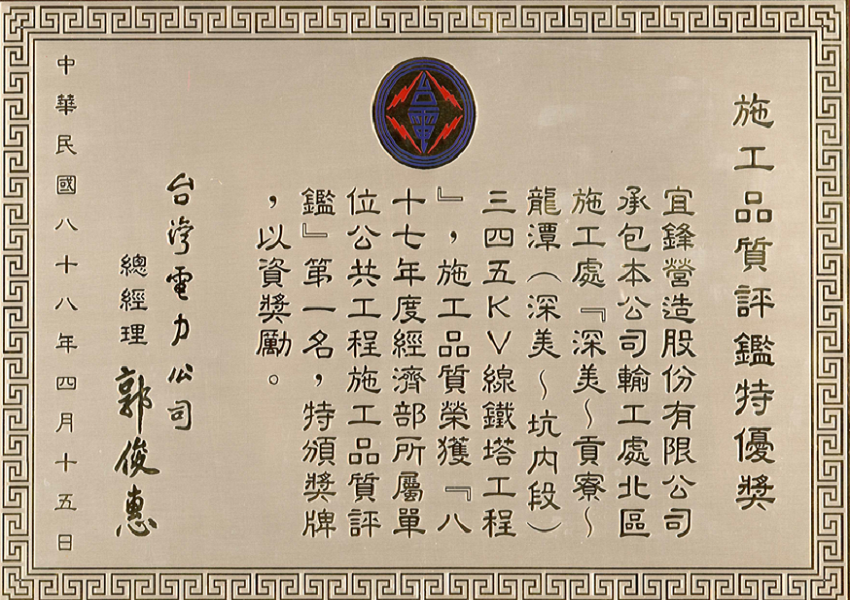 施工品質評鑑特優獎
宜鋒營造股份有限公司
承包本公司輸工處北區
施工處『深美~貢寮~
龍潭(深美~坑內段)
三四五KV線鐵塔工程
』,施工品質榮獲『八
十七年度經濟部所屬單
位公共工程施工品質評
鑑』第一名,特頒獎牌
,以資獎勵。
台灣電力公司
總經理 郭俊惠
中華民國八十八年四月十五日